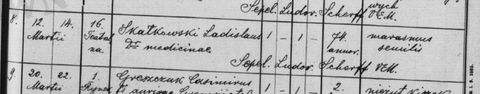 Sepel. Ludov. Scherff wych VEM.
8. 12. 14. 16. Skatkowski Ladislaus 1 - 1 - 74. marasmus
Martii annor. senilis
Dr medicinae
Sepel. Ludov. Scherff VEM.
9. 20. 22. 1. Greszczuk Casimirus
Martii Rynek 1 - 1 - 2.